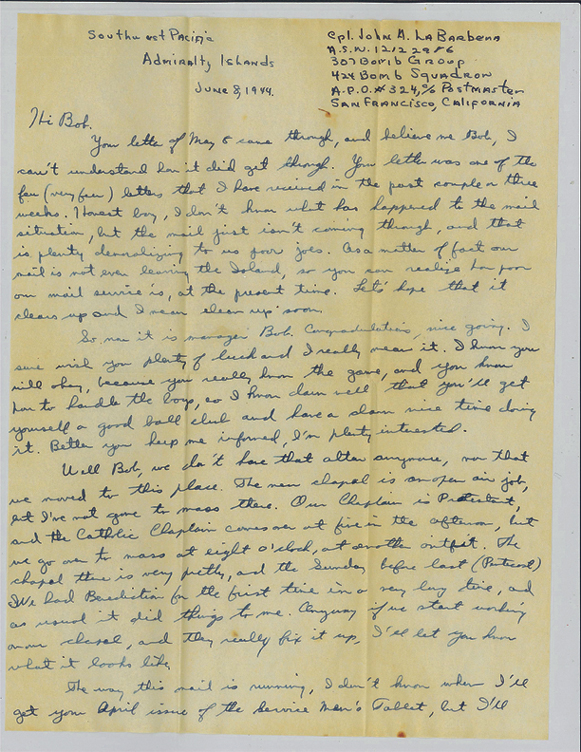 Southwest Pacific
Admiralty Islands
June 8, 1944.
Cpl. John A. LaBarbera
A.S.N. 12122986
307 Bomb Group
424 Bomb Squadron
A.P.O. # 324, % Postmaster
San Francisco, California
Hi Bob.
Your letter of May 8 came through, and believe me Bob, I
can't understand how it did get through. Your letter was one of the
few (very few) letters that I have received in the past couple or three
weeks. Honest boy, I don't know what has happened to the mail
situation, but the mail just isn't coming through, and that
is plenty demoralizing to us poor joes. As a matter of fact our
mail is not even leaving the Island, so you can realize how poor
our mail service is, at the present time. Let's hope that it
clears up and I mean clean up soon.
So, now it is manager Bob. Congradulations, nice going. I
sure wish you plenty of luck and I really mean it. I know you
will okay, because you really know the game, and you know
how to handle the boys, so I know darn well that you'll get
yourself a good ball club and have a darn nice time doing
it. Better you keep me informed, I'm plenty interested.
Well Bob, we don't have that altar anymore, now that
we moved to this place. The new chapel is an open air job,
but I've not gone to mass there. Our Chaplain is Protestant,
and the Catholic Chaplain comes over at five in the afternoon, but
we go over to mass at eight o'clock, at another outfit. The
chapel there is very pretty, and the Sunday before last (Pentecost)
We had Benediction for the first time in a very long time, and
as usual it did things to me. Anyway if we start working
on our chapel, and they really fix it up, I'll let you know
what it looks like.
The way this mail is running, I don't know when I'll
get your April issue of the Service Men's Tablet, but I'll